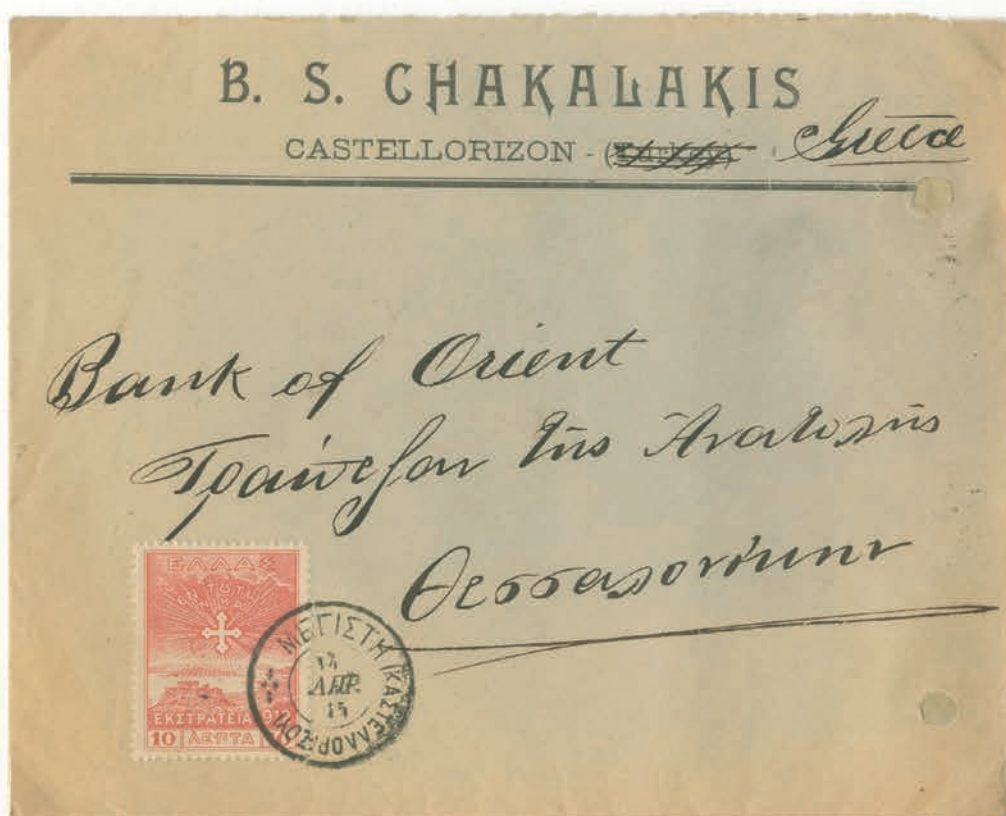 B. S. CHAKALAKIS
CASTELLORIZON - Greece
Bank of Orient
Τράπεζαν της Ανατολής
Θεσσαλονίκην
ΕΛΛΑΣ
ΕΝ ΤΟΥΤΩ
ΝΙΚΑ
ΕΚΣΤΡΑΤΕΙΑ 1912
10 ΛΕΠΤΑ
ΜΕΓΙΣΤΗ (ΚΑΣΤΕΛΛΟΡΙΖΟΝ)
14
ΑΠΡ.
15